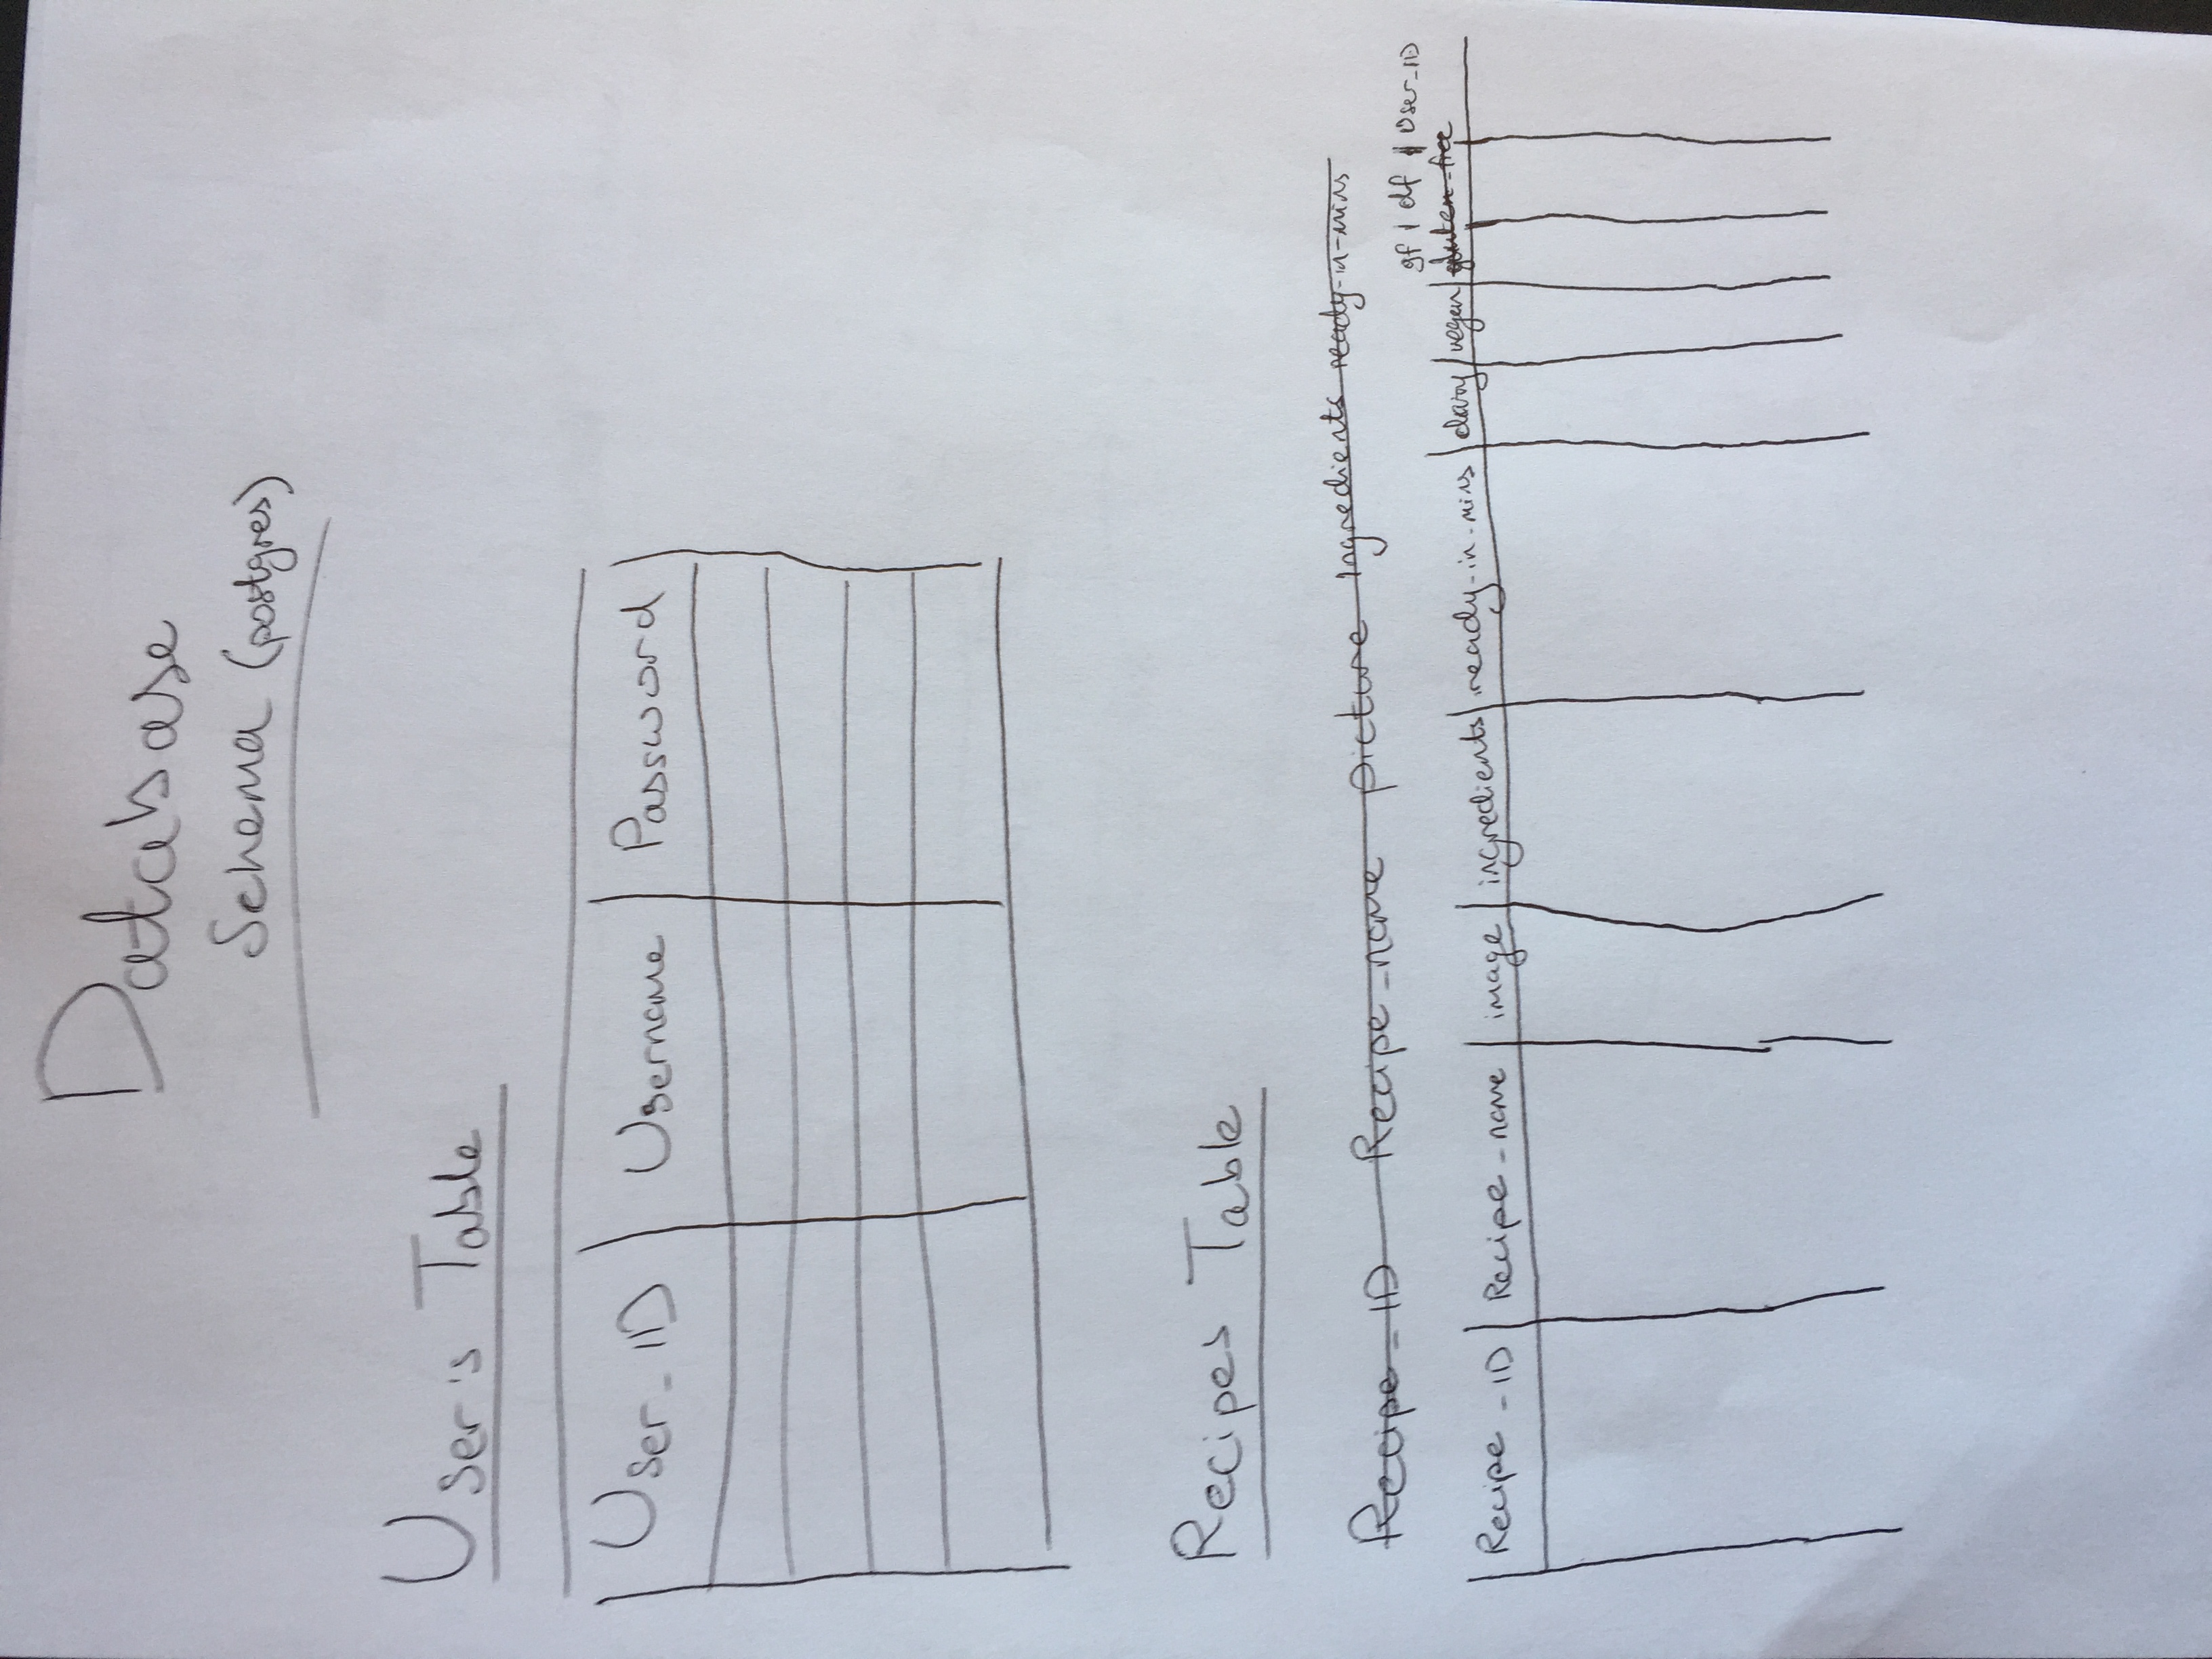 Database
Schema (postgres)
User's Table
User_ID Username Password
Recipes Table
Recipe_ID Recipe_name picture Ingredients ready-in-mins
gf | df | User_ID
Recipe_ID Recipe_name image ingredients ready-in-mins dairy vegan gluten-free